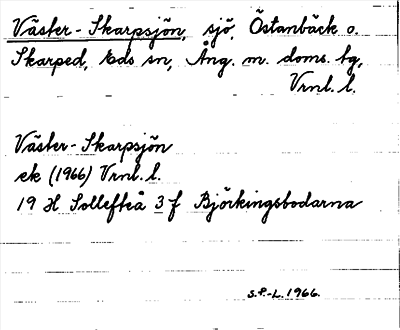 Väster-Skarpsjön, sjö, Östanbäck o.
Skarped, Eds sn, Ång. m. doms. bg,
Vrnl. l.
Väster-Skarpsjön
ek (1966) Vrnl. l.
19 H Sollefteå 3 f Björkingsbodarna
S.P.-L. 1966.